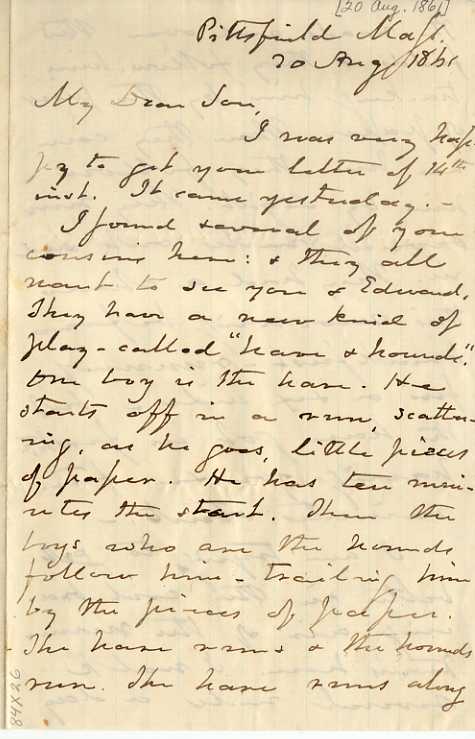 [20 Aug. 1861]
Pittsfield Mass.
20 Aug 1861
My Dear Son,
I was very hap-
py to get your letter of 14th
inst. It came yesterday. -
I found several of your
cousins here: & they all
want to see you & Edward.
They have a new kind of
play - called "hare & hounds".
One boy is the hare. He
starts off in a run, scatter-
ing, as he goes, little pieces
of paper. He has ten min-
utes the start. Then the
boys who are the hounds
follow him - trailing him
by the pieces of paper.
The hare runs & the hounds
run. The hare runs along
84X26